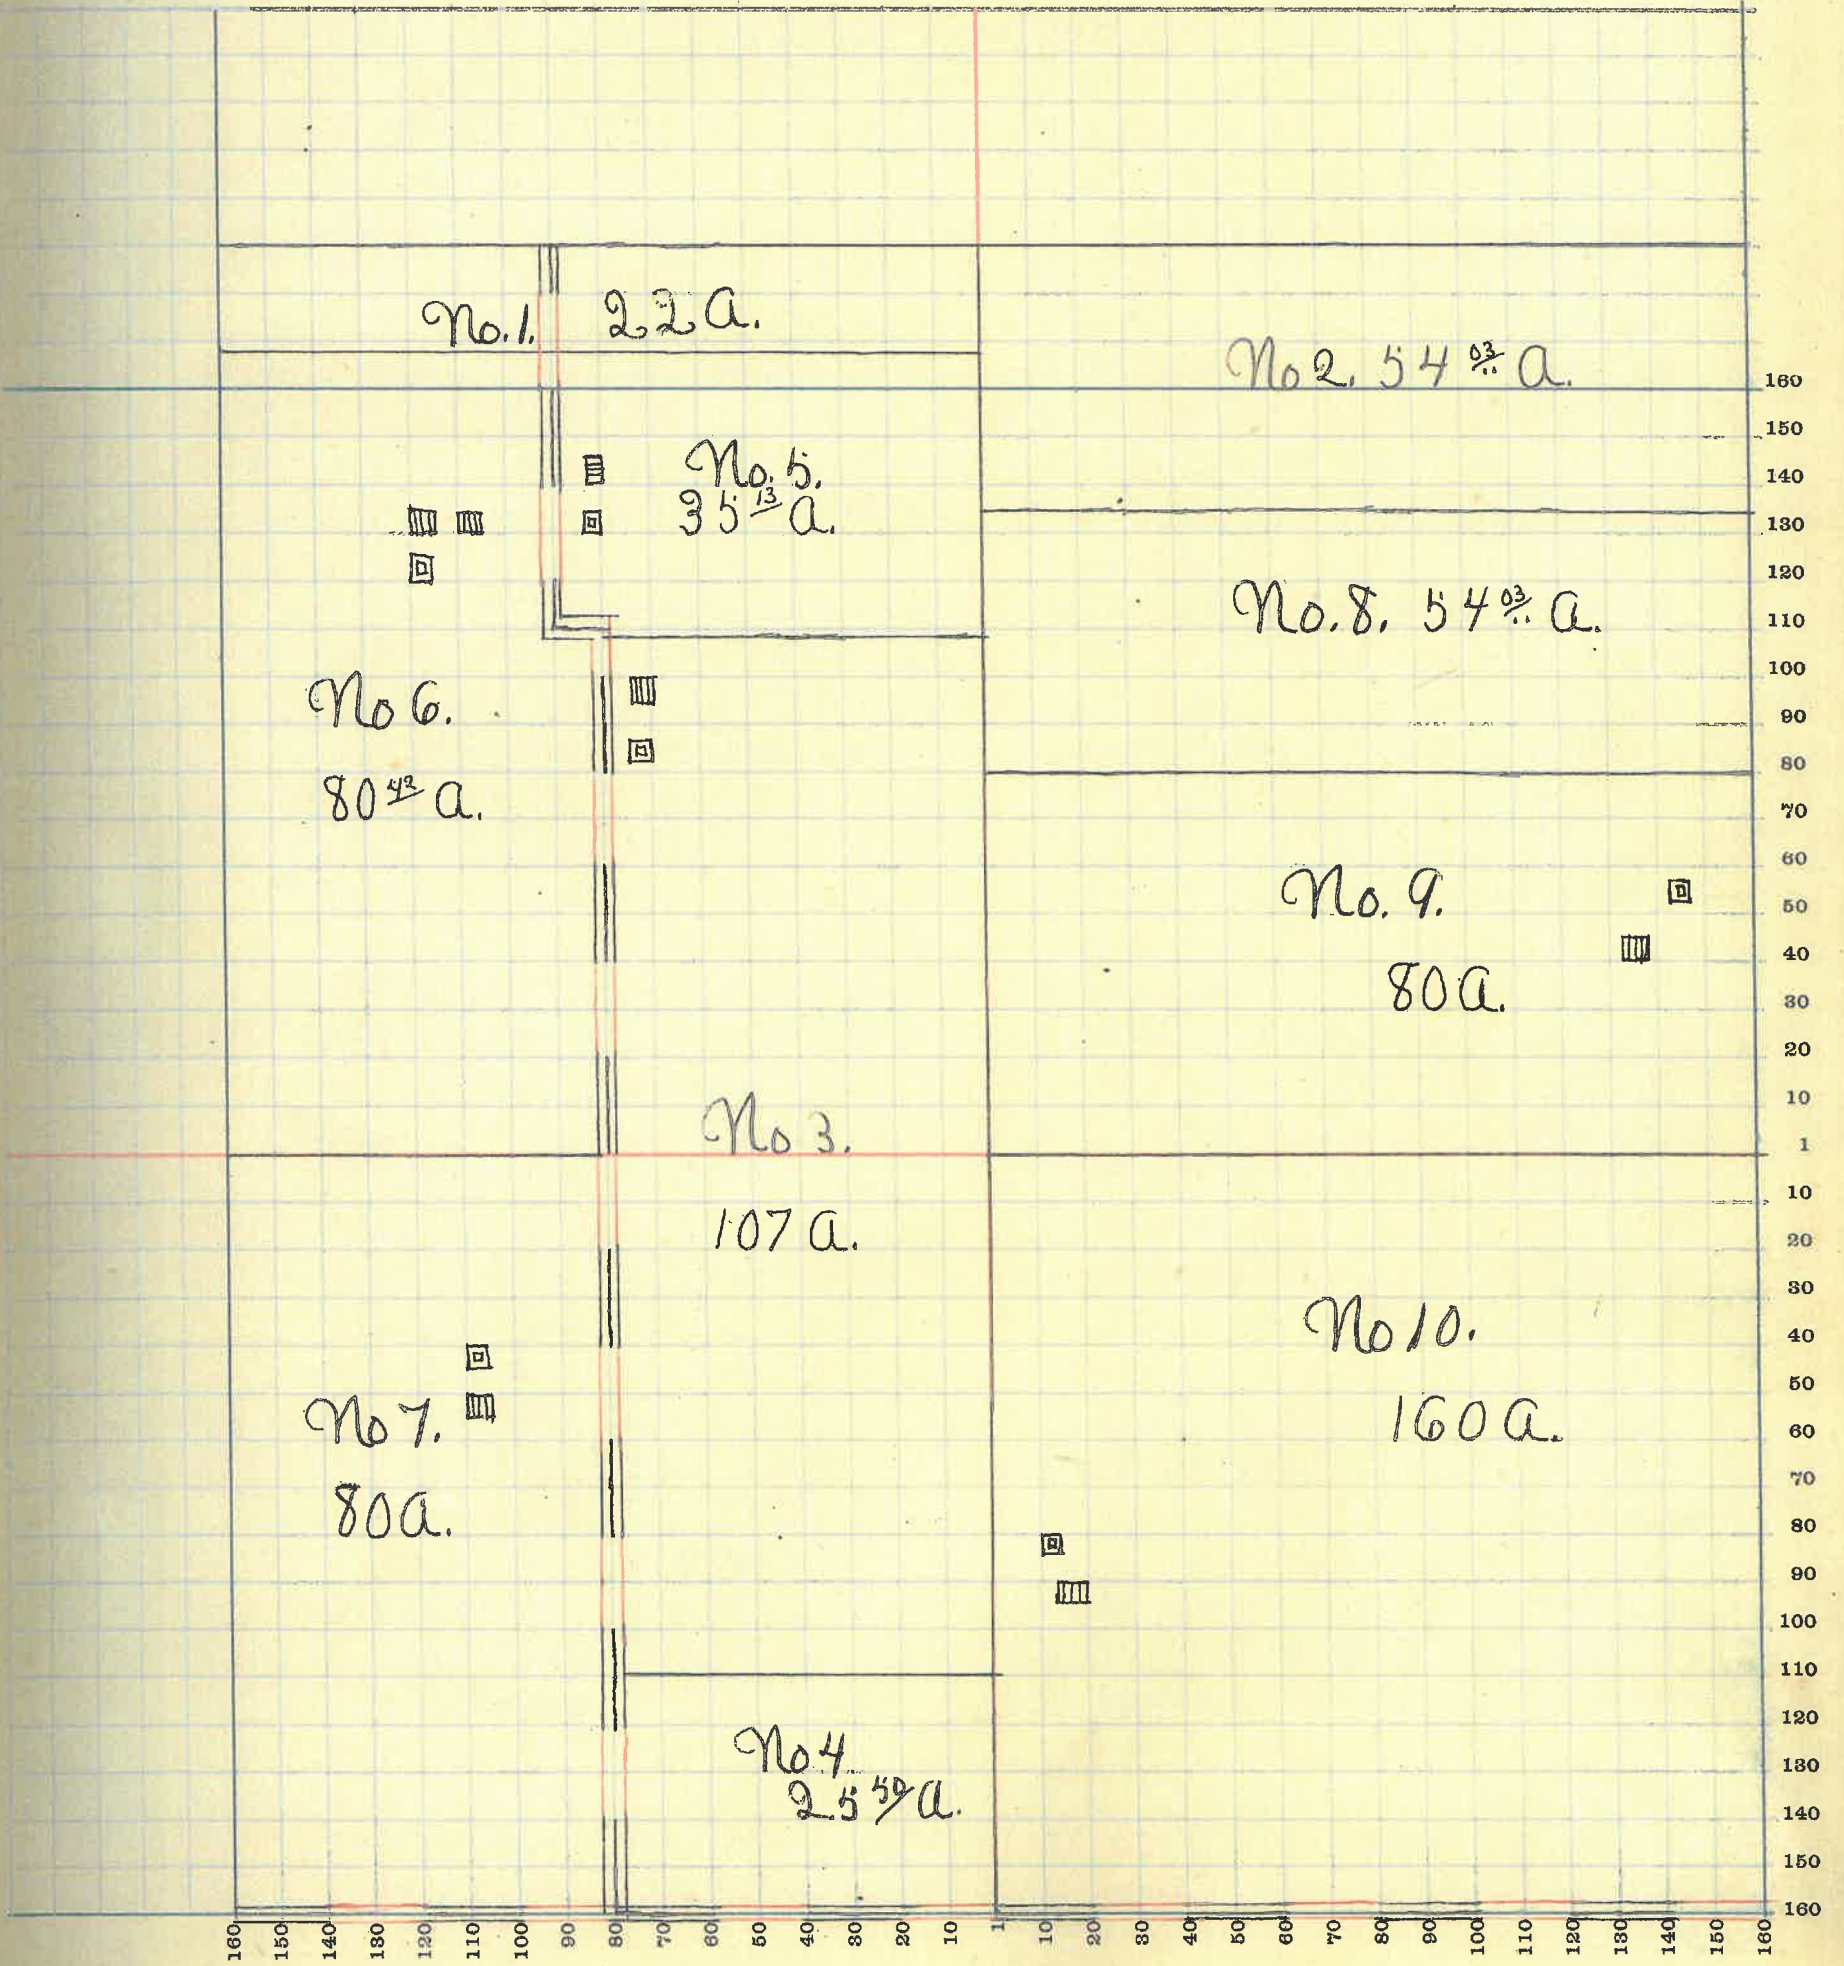 No. 1. 22 A.
No 2. 54 03/.. A.
No. 5.
35 13/ A.
No. 8. 54 03/.. A.
No 6.
80 42/ A.
No. 9.
80 A.
No 3.
107 A.
No 10.
160 A.
No 7.
80 A.
No 4.
25 50/ A.
160
150
140
130
120
110
100
90
80
70
60
50
40
30
20
10
1
10
20
30
40
50
60
70
80
90
100
110
120
130
140
150
160
160 150 140 130 120 110 100 90 80 70 60 50 40 30 20 10 1 10 20 30 40 50 60 70 80 90 100 110 120 130 140 150 160